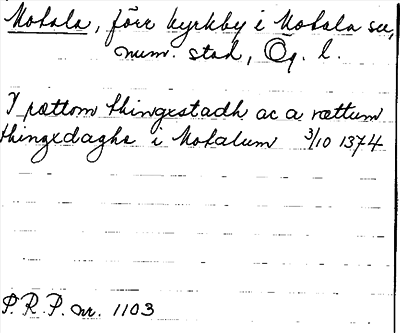 Motala, förr kyrkby i Motala sn,
num. stad, Ög. l.
I rættom thingxstadh ac a rættum
thingxdaghe i Motalum 3/10 1374
P.R.P. nr. 1103